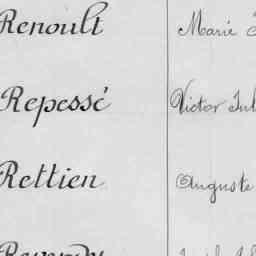 Renoult Marie
Repessé Victor Jul
Rettien Auguste